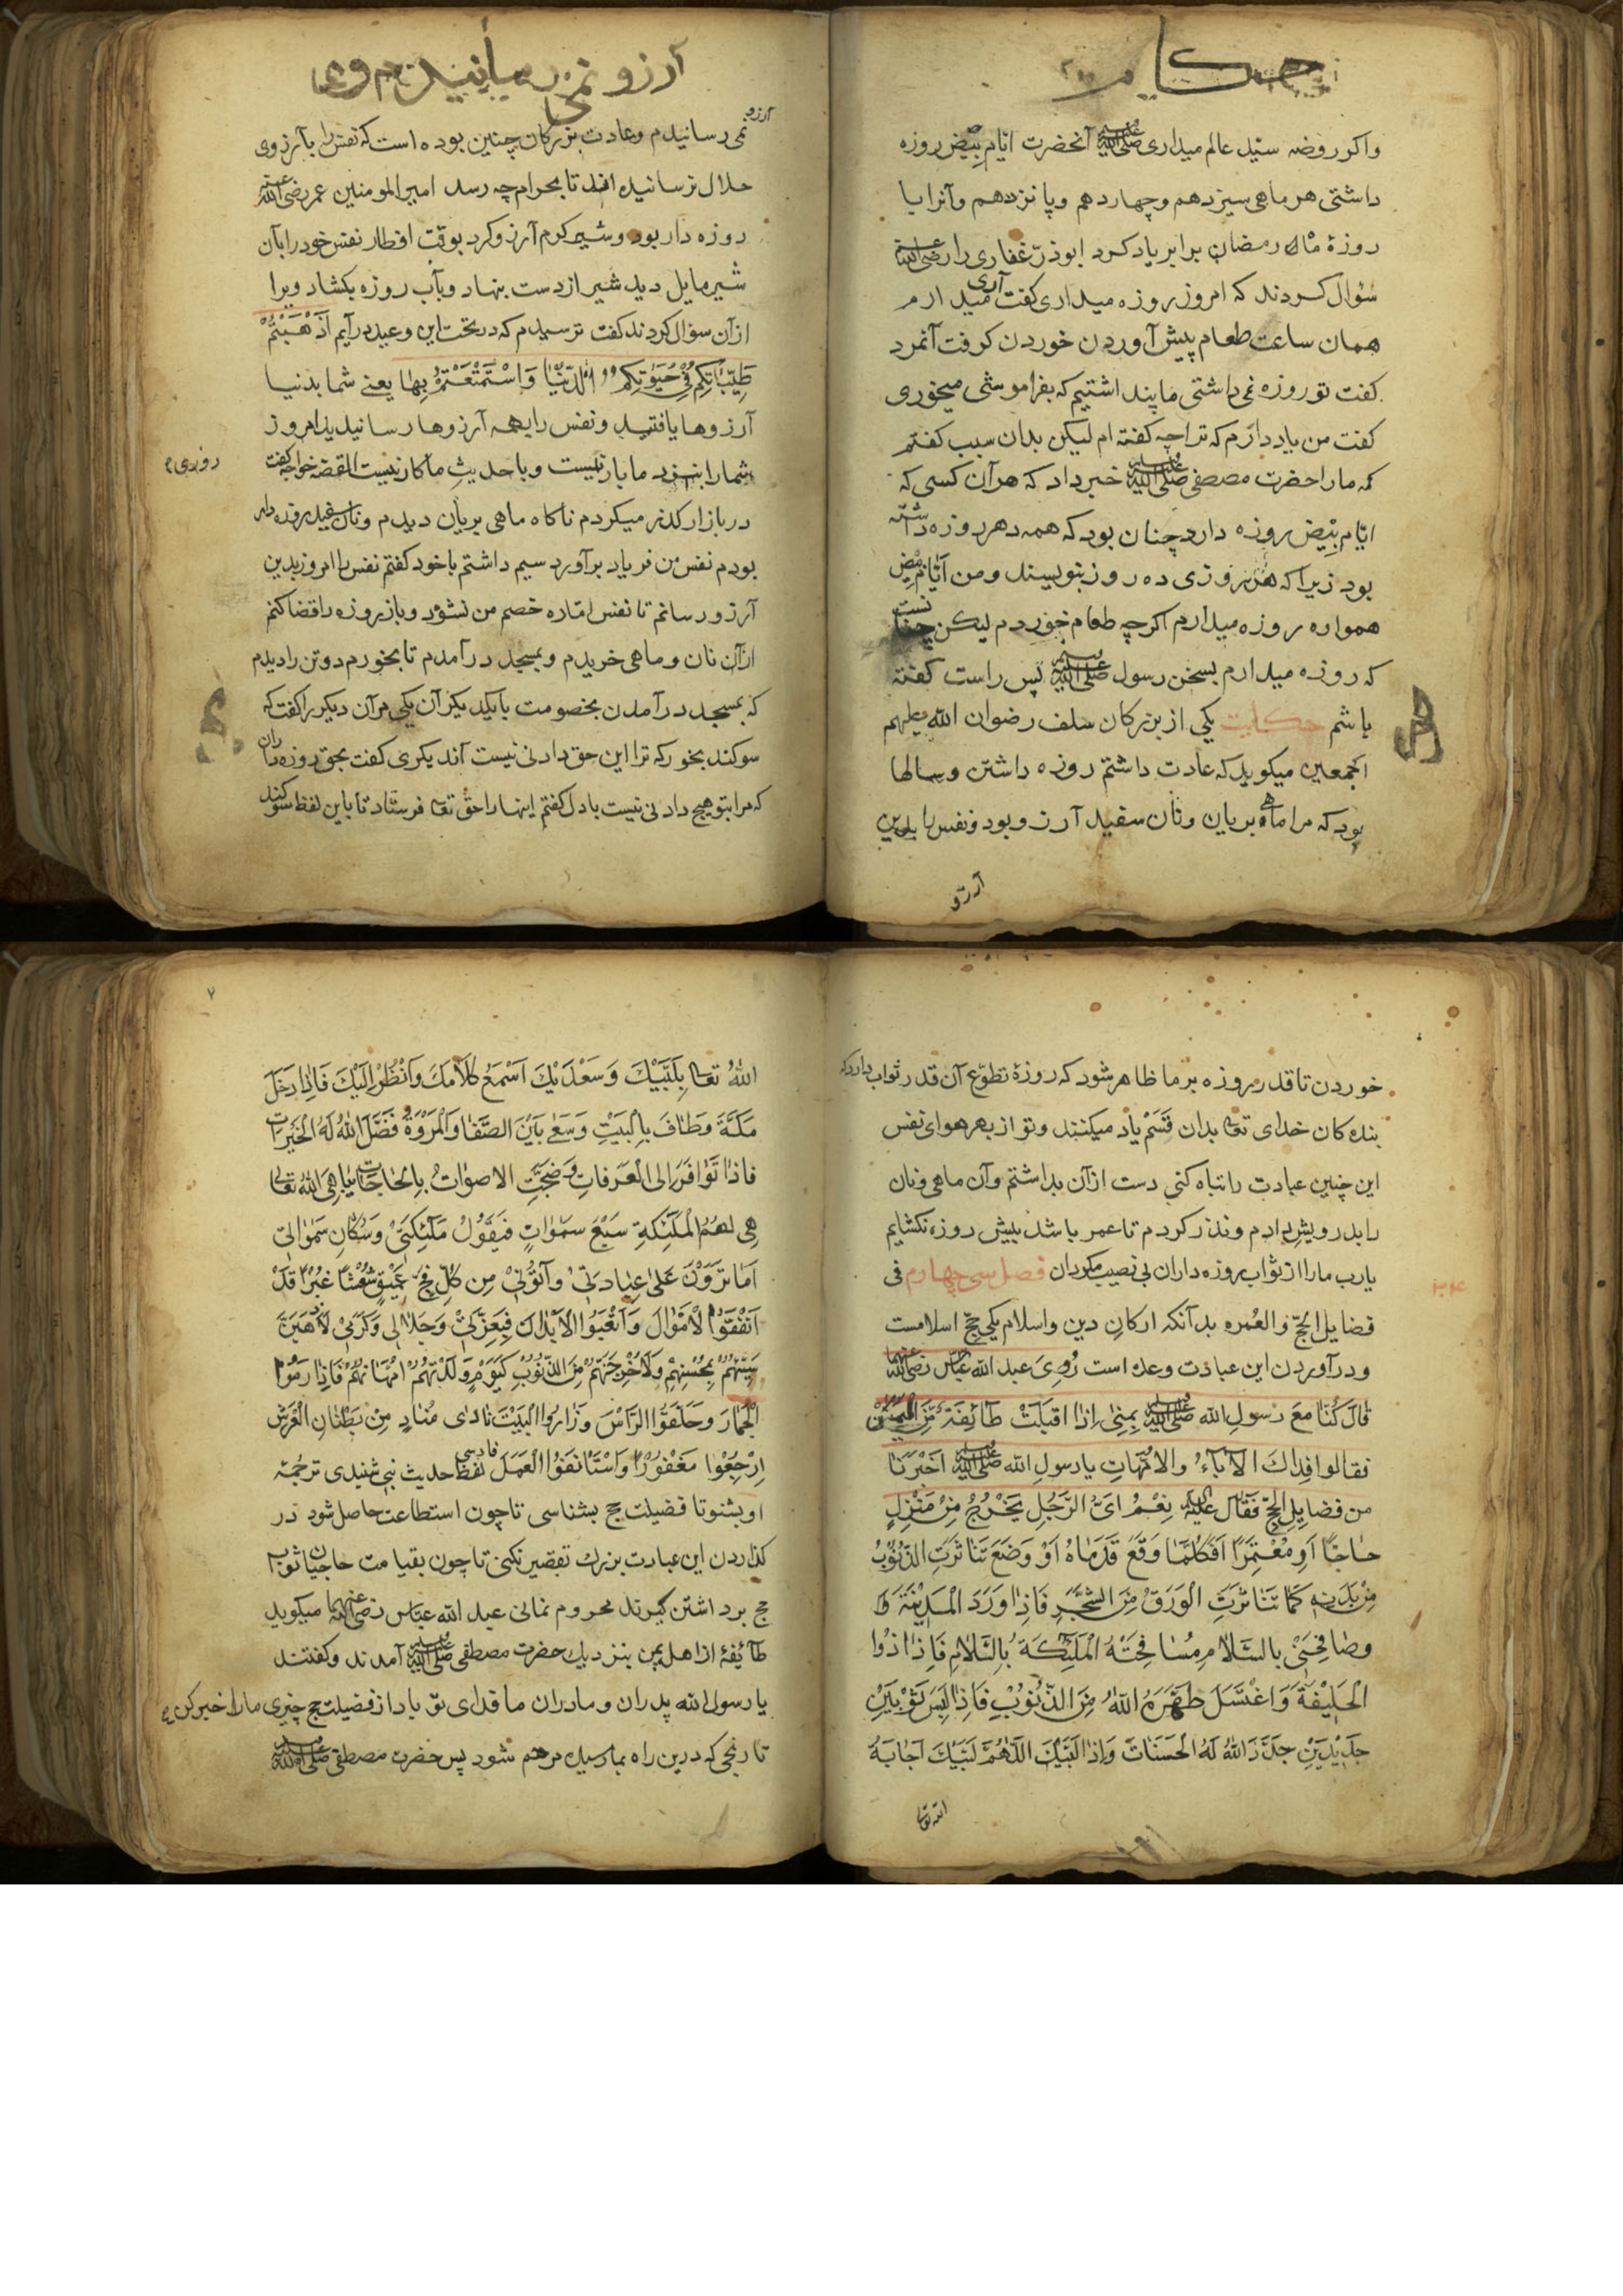 حکا
واکر روضه سیّد عالم میداری ﷺ آنحضرت ایّام بِیْض روزه
داشتی هر ماهی سیزدهم وچهاردهم وپانزدهم وآنرا با
روزهٔ ماه رمضان برابر یاد کرد ابوذرّ غفاری را رضی الله عنه
سُوال کردند که امروز روزه میداری کفت آری میدارم
همان ساعت طعام پیش آوردن خوردن کرفت آنمرد
کفت تو روزه نمی داشتی ما پنداشتیم که بفراموشی میخوری
کفت من یاد دارم که ترا چه کفته ام لیکن بدان سبب کفتم
که ما را حضرت مصطفی ﷺ خبر داد که هر آن کسی که
ایّام بِیْض روزه دارد چنان بود که همه دهر روزه داشته
بود زیرا که هر روزی ده روز بنویسند ومن ایّام بیض
همواره روزه میدارم اکرچه طعام خوردم لیکن چنانست
که روزه میدارم بسخن رسول ﷺ پس راست کفته
باشم حکایت یکی از بزرکان سلف رضوان الله علیهم
اجمعین میکوید که عادت داشتم روزه داشتن وسالها
بود که مرا ماهی بریان ونان سفید آرزو بود ونفس را بدین
آرزو
آرزو نمی رسانیدم وعا
آرزو
نمی رسانیدم وعادت بزرکان چنین بوده است که نفس را بآرزوی
حلال نرسانیده اند تا بحرام چه رسد امیر المومنین عمر رضی الله عنه
روزه دار بود وشیر کرم آرزو کرد بوقت افطار نفس خود را بآن
شیر مایل دید شیر از دست بنهاد وبآب روزه بکشاد ویرا
از آن سؤال کردند کفت ترسیدم که در تحت این وعید درآیم اَذْهَبْتُمْ
طَیِّبَاتِکُم فِیْ حَیٰوتِکُم الدُّنْیَا وَاسْتَمْتَعْتُمْ بِهَا یعنے شما بدنیا
آرزوها یافتید ونفس را بهمه آرزوها رسانیدید امروز
شما را بنزد ما بار نیست وبا حدیثِ ما کار نیست القصه خواجه کفت
روزی
در بازار کذر میکردم ناکاه ماهی بریان دیدم ونان سفید روزه دار
بودم نفس من فریاد برآورد سیم داشتم با خود کفتم نفس را امروز بدین
آرزو رسانم تا نفس امّاره خصم من نشود وباز روزه را قضا کنم
از آن نان وماهی خریدم وبمسجد درآمدم تا بخورم دو تن را دیدم
که بمسجد درآمدن بخصومت بایکدیکر آن یکی مر آن دیکر را کفت که
سوکند بخور که ترا این حق دادنی نیست آن دیکری کفت بحق روزه داران
که مرا بتو هیچ دادنی نیست با دل کفتم اینها را حقّ تعا فرستاد تا باین لفظ سوکند
خوردن تا قدر روزه بر ما ظاهر شود که روزهٔ تطوّع آن قدر ثواب دارد که
بنده کان خدای تعا بدان قَسَمْ یاد میکنند وتو از بهر هوای نفس
این چنین عبادت را تباه کنی دست از آن بداشتم وآن ماهی ونان
را بدرویش دادم ونذر کردم تا عمر باشد بیش روزه نکشایم
یارب ما را از ثواب روزه داران بی نصیب مکردان فصل سی چهارم فی
فضایل الحجّ والعُمره بدآنکه ارکان دین واسلام یکی حجّ اسلامست
ودر آوردن این عبادت وعده است رُوِیَ عبد الله عباس رضی الله عنهما
قَالَ کُنَّا مَعَ رسولِ الله ﷺ بِمِنٰی اِذا اقبلَتْ طائفةٌ مِّنَ الیَمَنْ
فقالوا فِداكَ الاٰباءُ والاُمَّهاتِ یا رسولِ الله ﷺ اَخْبِرْنَا
من فضایِلِ الحجّ فَقَال علیه السلام نِعْمَ ایُّ الرَّجُلِ یَخْرُجُ مِنْ مَنْزِلِهٖ
حاجًّا اَوِ مُعْتَمِرًا فَکُلَّمَا وَقَعَ قَدَمَاهُ اَوْ وَضَعَ تَنَاثَرَتِ الذُّنُوْبُ
مِنْ بَدَنِهٖ کَمَا تَنَاثَرَتِ الْوَرَقُ مِنَ الشَّجَرِ فَاِذا وَرَدَ الْمَدِیْنَةَ
وصَافَحَنِیْ بالسَّلامِ مُسَافِحَتْهُ الْمَلٰئِکَةُ بِالسَّلامِ فَاِذا
الحَلِیْفَةَ وَاغْتَسَلَ طَهَّرَهُ اللهُ مِنَ الذُّنُوْبِ فَاِذا لَبِسَ ثَوْبَیْنِ
جَدِیْدَیْنِ جَدَّدَ اللهُ لَهُ الْحَسَنَاتَ وَاِذا لَبَّیْكَ اللّٰهُمَّ لَبَّیْكَ اَجَابَهُ
الله تعا
۷
اللهُ تعا بِلَبَّیْكَ وَسَعْدَیْكَ اَسْمَعُ کَلَامَكَ وَاَنْظُرُ اِلَیْكَ فَاِذا دَخَلَ
مَکَّةَ وَطَافَ بِالْبَیْتِ وَسَعٰی بَیْنَ الصَّفَا وَالْمَرْوَةِ فَضَّلَ اللهُ لَهُ الْخَیْرَاتَ
فاذا تَوَافَرَ الی العَرَفاتِ وَضَجَّتِ الاصواتُ بِالحَاجَاتِ یباهِیَ اللهُ تعالی
هِی لهُمُ الْمَلٰئِکَةِ سَبْعَ سَمٰواتٍ فَیَقُوْلُ مَلٰئِکَتِیْ وَسُکَّانِ سَمٰواتی
اَمَا تَرَوْنَ عَلٰی عِبَادِیْ وَآتَوْنِیْ مِن کُلِّ فَجٍّ عَمِیْقٍ شُعْثًا غُبْرًا قَدْ
اَنْفَقُوا الْاَمْوَالَ وَاَتْعَبُوا الْاَبْدَانَ فَبِعِزَّتِیْ وَجَلَالِی وَکَرَمِیْ لَاَهَبَنَّ
مُسِیْئَهُمْ بِمُحْسِنِهِمْ وَلَاُخْرِجَنَّهُمْ مِنَ الذُّنُوْبِ کَیَوْمٍ وَلَدَتْهُمْ اُمَّهَاتُهُمْ فَاِذا رَمَوُا
الْجِمَارَ وَحَلَقُوا الرَّأْسَ وَزَارُوا الْبَیْتَ نَادٰی مُنَادٍ مِنْ بَطْنَانِ الْعَرْشِ
اِرْجِعُوْا مَغْفُوْرًا وَاسْتَأْنِفُوا الْعَمَلَ لفظ حدیث نبی شنیدی ترجمهٔ فارسی
او بشنو تا فضیلت حج بشناسی تا چون استطاعت حاصل شود در
کذاردن این عبادت بزرك تقصیر نکنی تا چون بقیامت حاجیان ثواب
حج برداشتن کیرند محروم نمانی عبد الله عبّاس رضی الله عنهما میکوید
طائفهٔ از اهل یمن بنزدیك حضرت مصطفی ﷺ آمدند وکفتند
یا رسول الله پدران ومادران ما فدای تو بادا از فضیلت حج چیزی ما را خبر کن
تا رنجی که درین راه بما رسیده مرهم شود پس حضرت مصطفی ﷺ